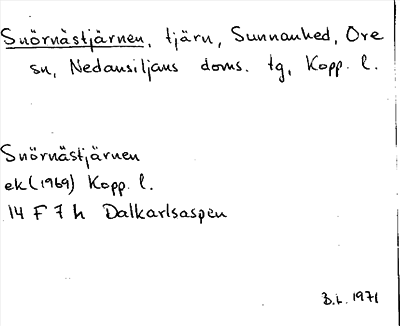 Snörnästjärnen, tjärn, Sunnanhed, Ore
sn, Nedansiljans doms. tg, Kopp. l.
Snörnästjärnen
ek (1969) Kopp. l.
14 F 7 h Dalkarlsaspen
B.L. 1971